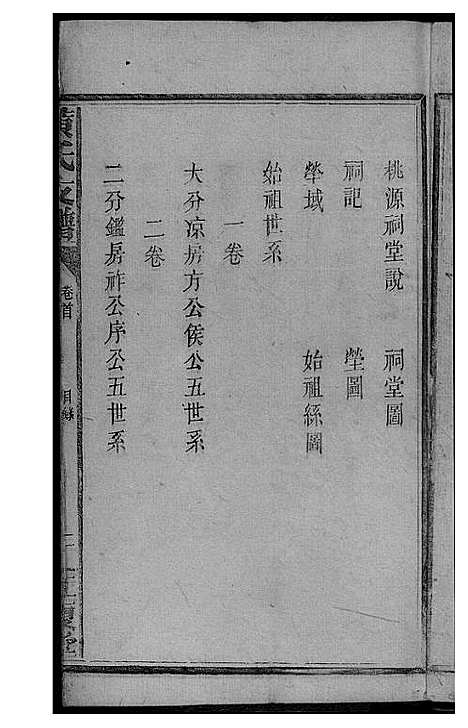 桃源祠堂說　祠堂圖
祠記　塋圖
塋域　始祖絲圖
始祖世系
一卷
大分凉房方公侯公五世系
二卷
二分鑑房祚公序公五世系
黃氏支譜
卷首
目錄
二